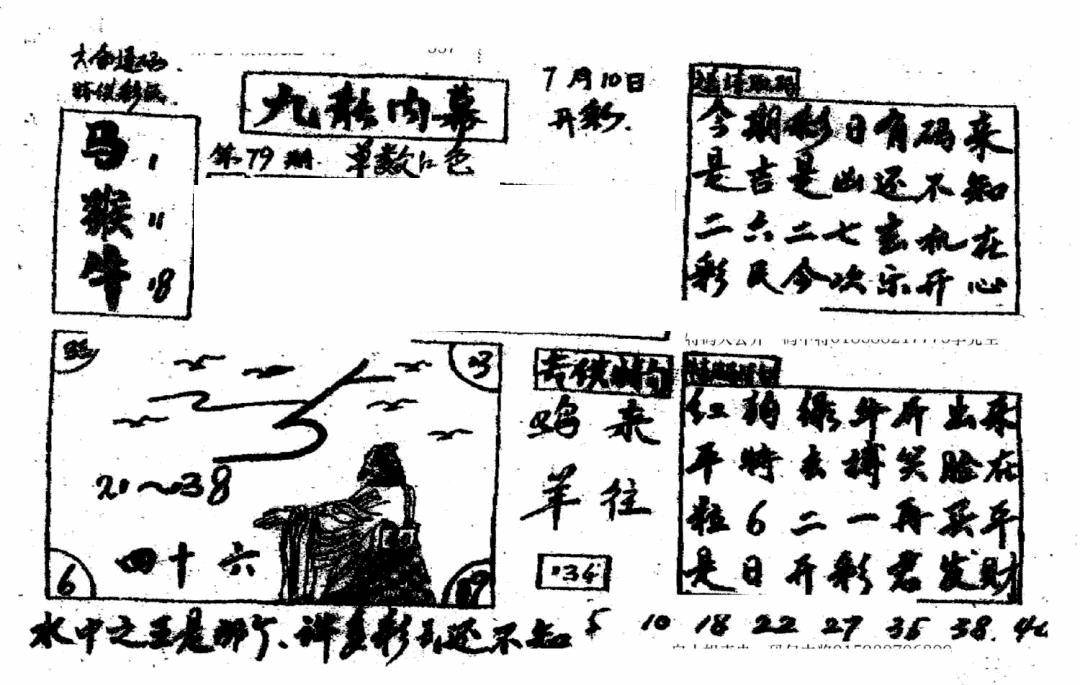 马 1
猴 11
牛 18
九龙内幕
第79期 单数
7月10日
开彩
今期彩日有码来
是吉是凶还不知
二六二七玄机在
彩民今次乐开心
33
21~38
四十六
6
19
水中之王是那个、许多彩民还不知
专供特句
鸡来
羊往
34
红狗绿牛开出来
平特去搏笑脸在
粒6二一再买平
是日开彩君发财
5 10 18 22 27 35 38